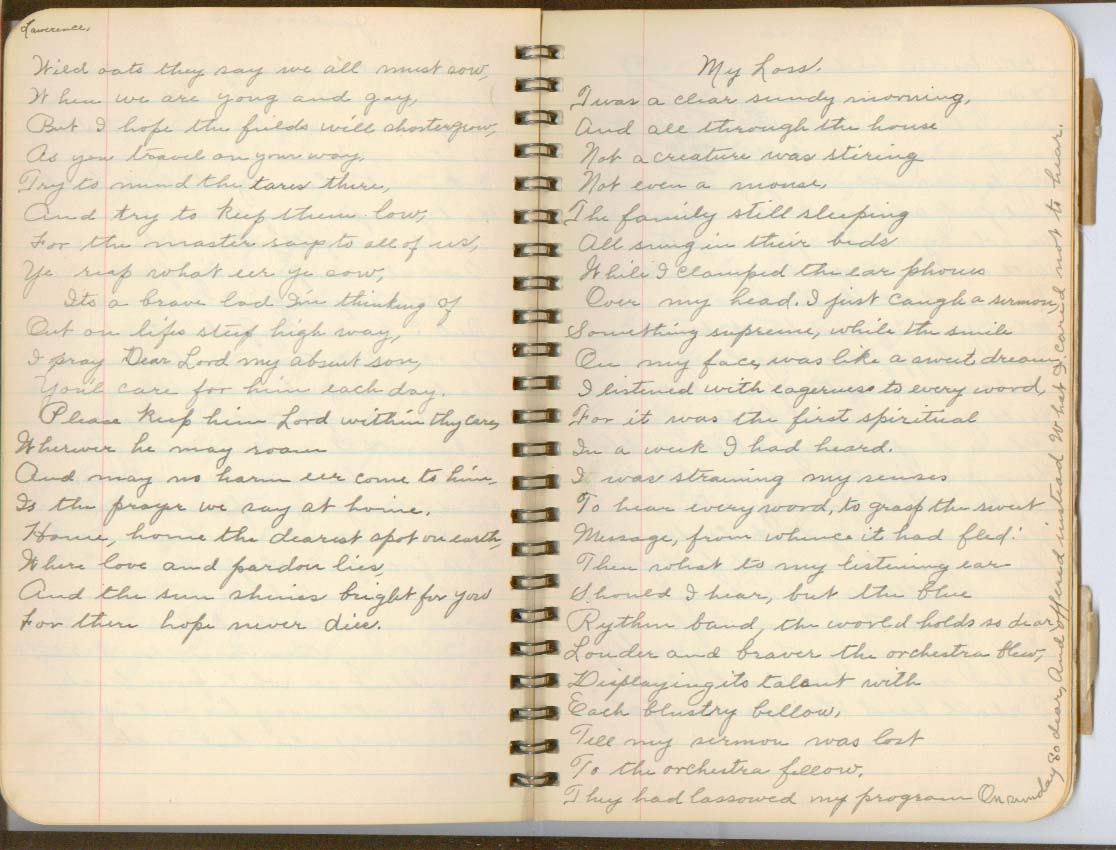 Lawerence,
Wild oats they say we all must sow,
When we are yong and gay,
But I hope the fields will shorter grow,
As you travel on your way.
Try to mind the tares there,
And try to keep them low,
For the master says to all of us,
Ye reap what eer ye sow,
Its a brave lad I'm thinking of
Out on lifes steep high way,
I pray Dear Lord my absent son,
You'l care for him each day.
Please keep him Lord within thy care,
Wherever he may roam
And may no harm eer come to him,
Is the prayer we say at home.
Home, home the dearest spot on earth,
Where love and pardon lies,
And the sun shines bright for you
For there hope never dies.
My Loss.
Twas a clear sundy morning,
And all through the house
Not a creature was stiring
Not even a mouse,
The family still sleeping
All snug in their beds
While I clamped the ear phones
Over my head. I just caugh a sermon,
Something supreme, while the smile
On my face, was like a sweet dream
I listened with eagerness to every word,
For it was the first spiritual
In a week I had heard.
I was straining my senses
To hear every word, to grasp the sweet
Message, from whence it had fled!
Then what to my listening ear
Should I hear, but the blue
Rythm band, the world holds so dear,
Louder and braver the orchestra blew,
Displaying its talent with
Each blustry bellow,
Till my sermon was lost
To the orchestra fellow.
They had lassowed my program On sunday so dear, And offered instead What I cared not to hear.